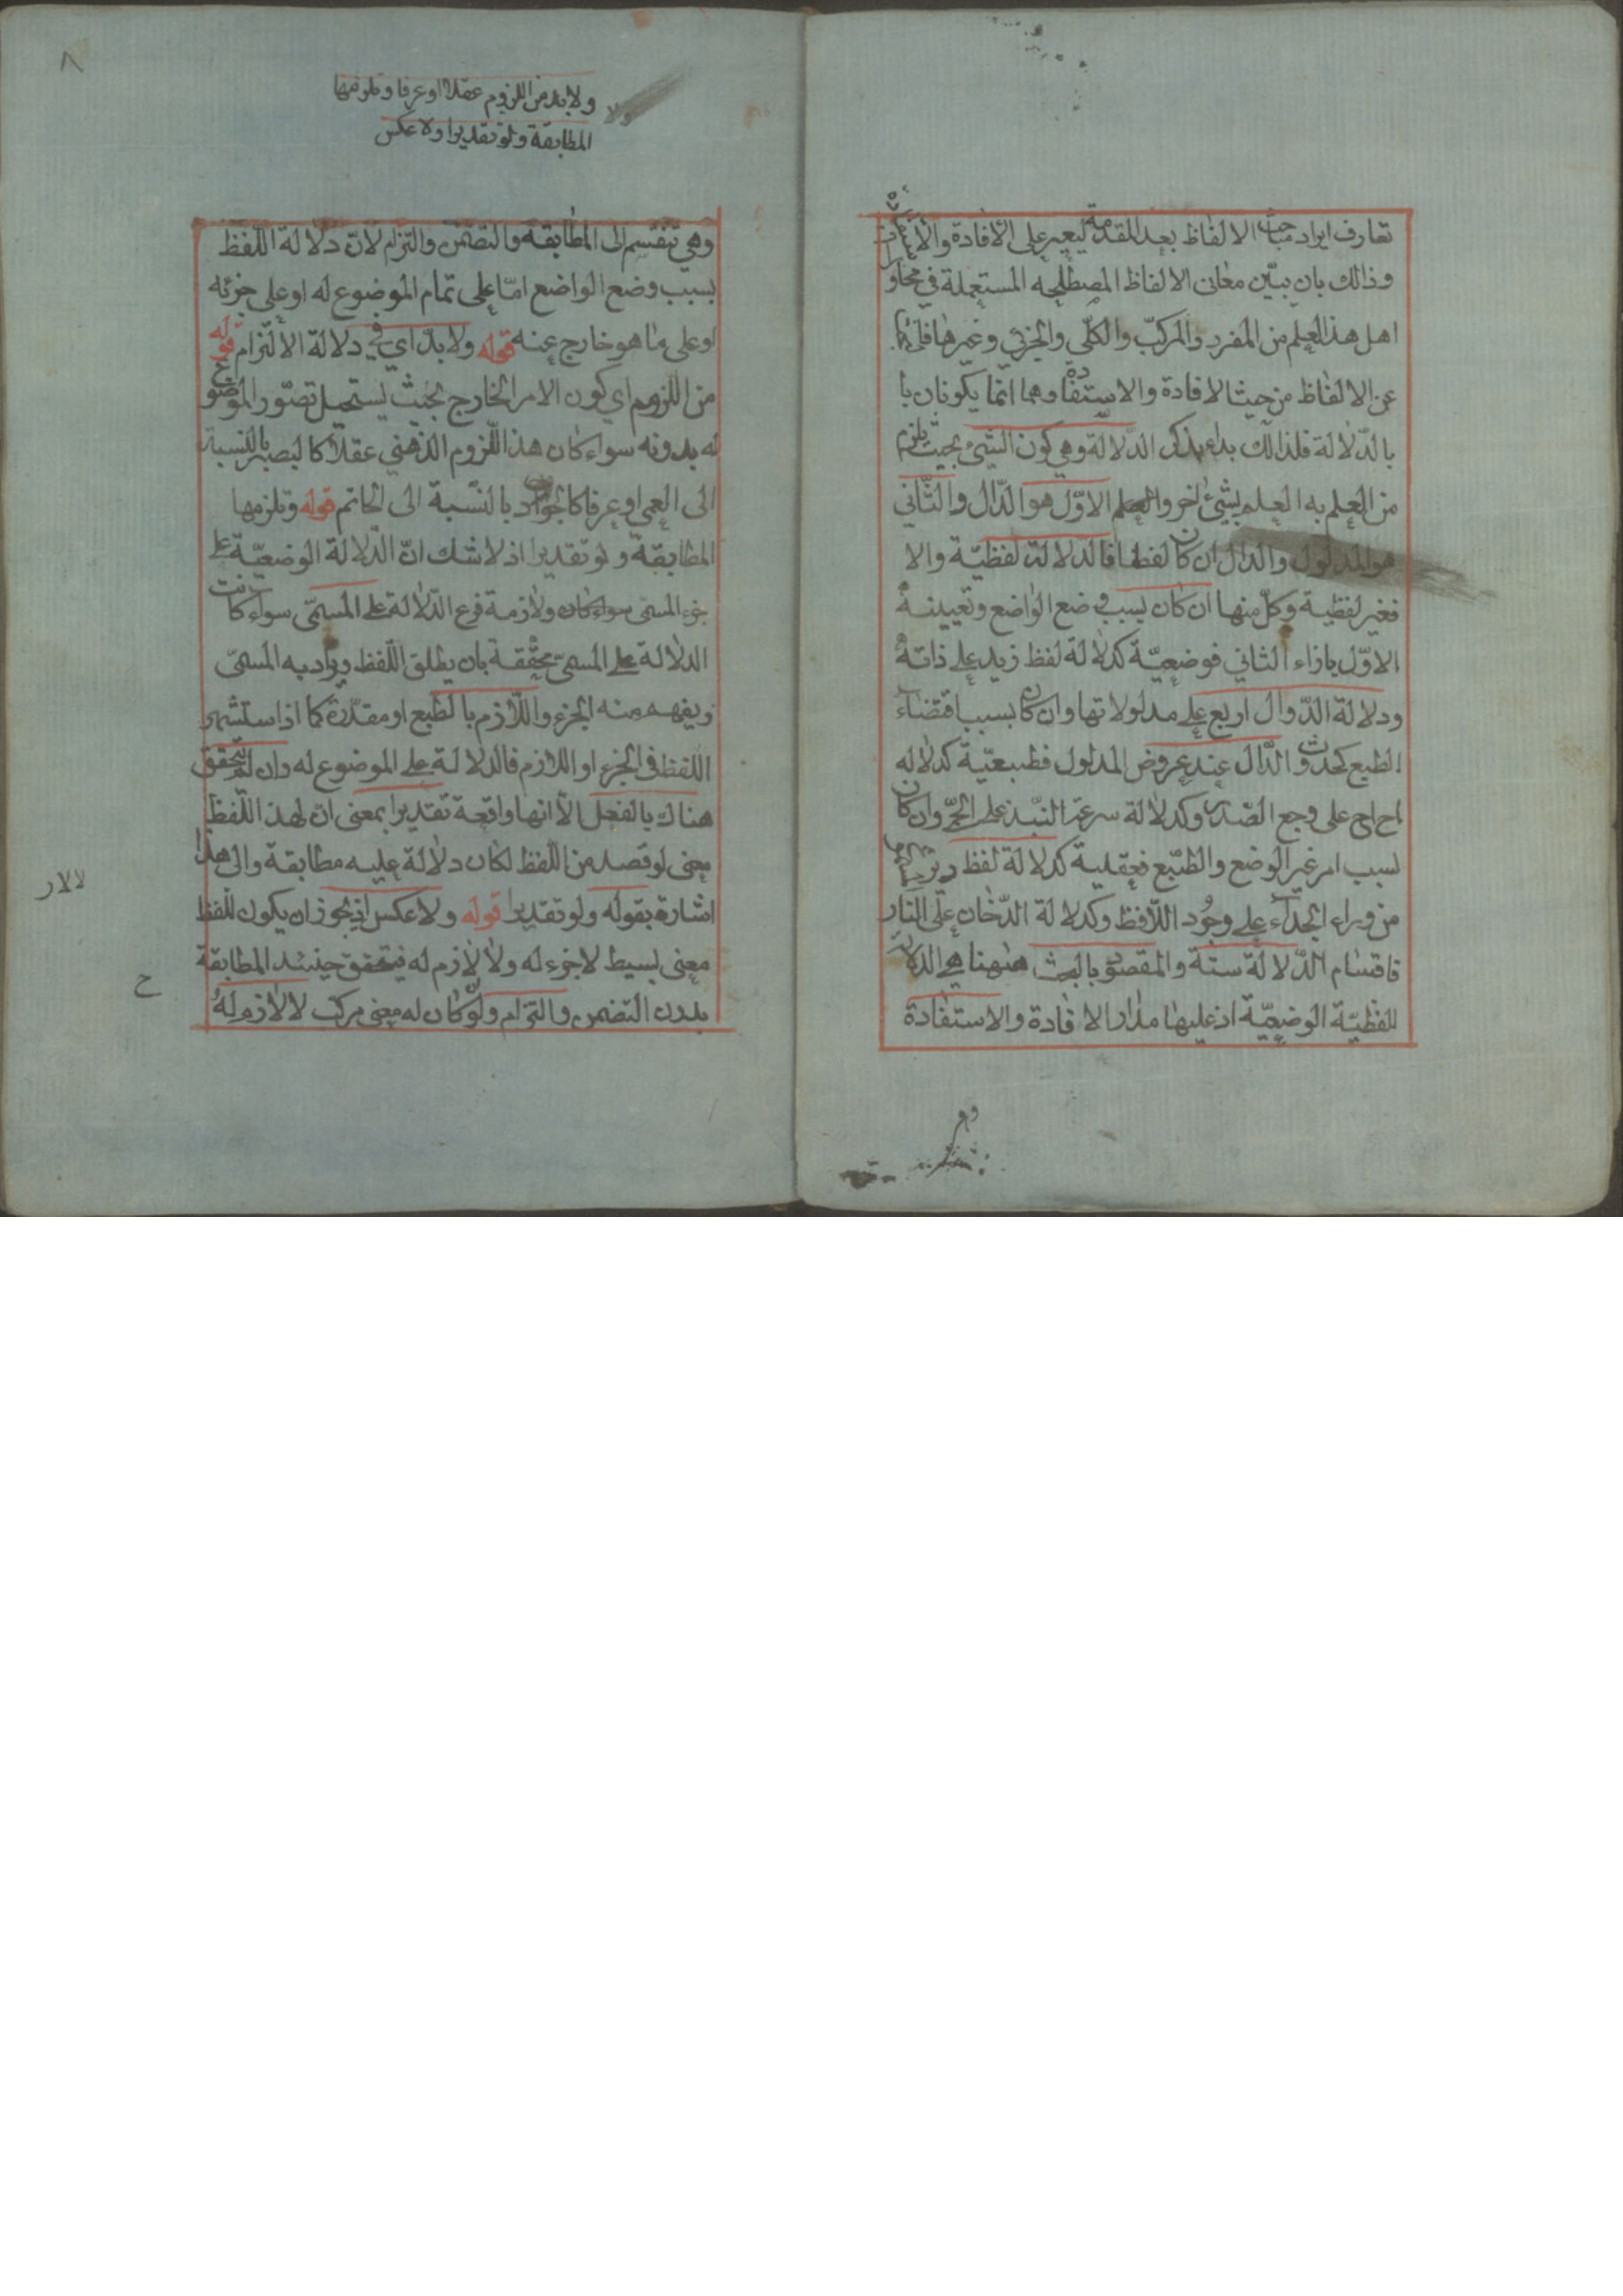 تعارف ايراد مباحث الالفاظ بعد المقدمة ليعير على الافادة والا
وذالك بان يبيّن معانى الالفاظ المصطلحه المستعملة في محاو
اهل هذا العلم من المفرد والمركبّ والكلّي والجزئي وغيرها
عن الالفاظ من حيث الافادة والاستفادة وهما انما يكونان با
بالدّلالة فلذالك بداء بذكر الدّلالة وهي كون الشيئ بحيث يلزم
من العلم به العلم بشيئ اخر والعلم الاوّل هو الدّال والثّاني
هو المدلول والدال ان كان لفظا فالدلالت لفظيّة والا
فغير لفظية وكلّ منها ان كان بسبب وضع الواضع وتعيينه
الاوّل بازاء الثاني فوضعيّة كدلالة لفظ زيد على ذاته
ودلالة الدّوال اربع على مدلولاتها وان كان بسبب اقتضاء
الطبع كحدوث الدّال عند عروض المدلول فطبيعيّة كدلاله
اح اح على وجع الصّدر وكدلالة سرعة النّبذ على الحمّي وان كان
لسبب امر غير الوضع والطّبع فعقلية كدلالة لفظ ديز
من وراء الجداء على وجُود اللّافظ وكدلالة الدّخان على النار
فاقسام الدّلالة ستة والمقصود بالبحث ههنا هي الدلالة
للفظيّة الوضعيّة اذ عليها مدار الافادة والاستفادة
ولا بد من اللزوم عقلا او عرفا وتلزمها
المطابقة ولو تقديرا ولا عكس
وهي تنقسم الى المطابقه والتضمّن والتزام لانّ دلالة اللّفظ
بسبب وضع الواضع امّا على تمام الموضوع له او على جزئه
او على ما هو خارج عنه قوله ولا بدّ اي في دلالة الالتزام قوله
من اللّزوم اي كون الامر الخارج بحيث يستحيل تصّور الموضوع
له بدونه سواء كان هذا اللّزوم الذهني عقلاً كا لبصر بالنسبة
الى العمى او عرفا كالجواد بالنّسبة الى الحاتم قوله وتلزمها
المطابقة ولو تقديرا اذ لا شك انّ الدّلالة الوضعيّة على
جزء المسمّى سواء كان ولازمة فرع الدّلالة على المسمّى سواء كانت
الدلالة على المسمّى محقّقة بان يطلق اللّفظ ويراد به المسمّى
ويفهم منه الجزء واللّازم بالطّبع او مقدّرة كما اذا ستشهر
اللفظ في الجزء او اللازم فالدلالة على الموضوع له وان لم يتحقق
هناك بالفعل الّا انها واقعة تقديرا بمعنى ان لهذ اللّفظ
معنى لو قصد من اللّفظ لكان دلالة عليه مطابقة والى هذا
اشارة بقوله ولو تقديرا قوله ولا عكس اذ يجوز ان يكون للّفظ
معنى بسيط لا جزء له ولا لازم له فيتحقق حينئد المطابقة
بدون التضمن والتزام ولو كان له معنى مركب لا لازم لهُ